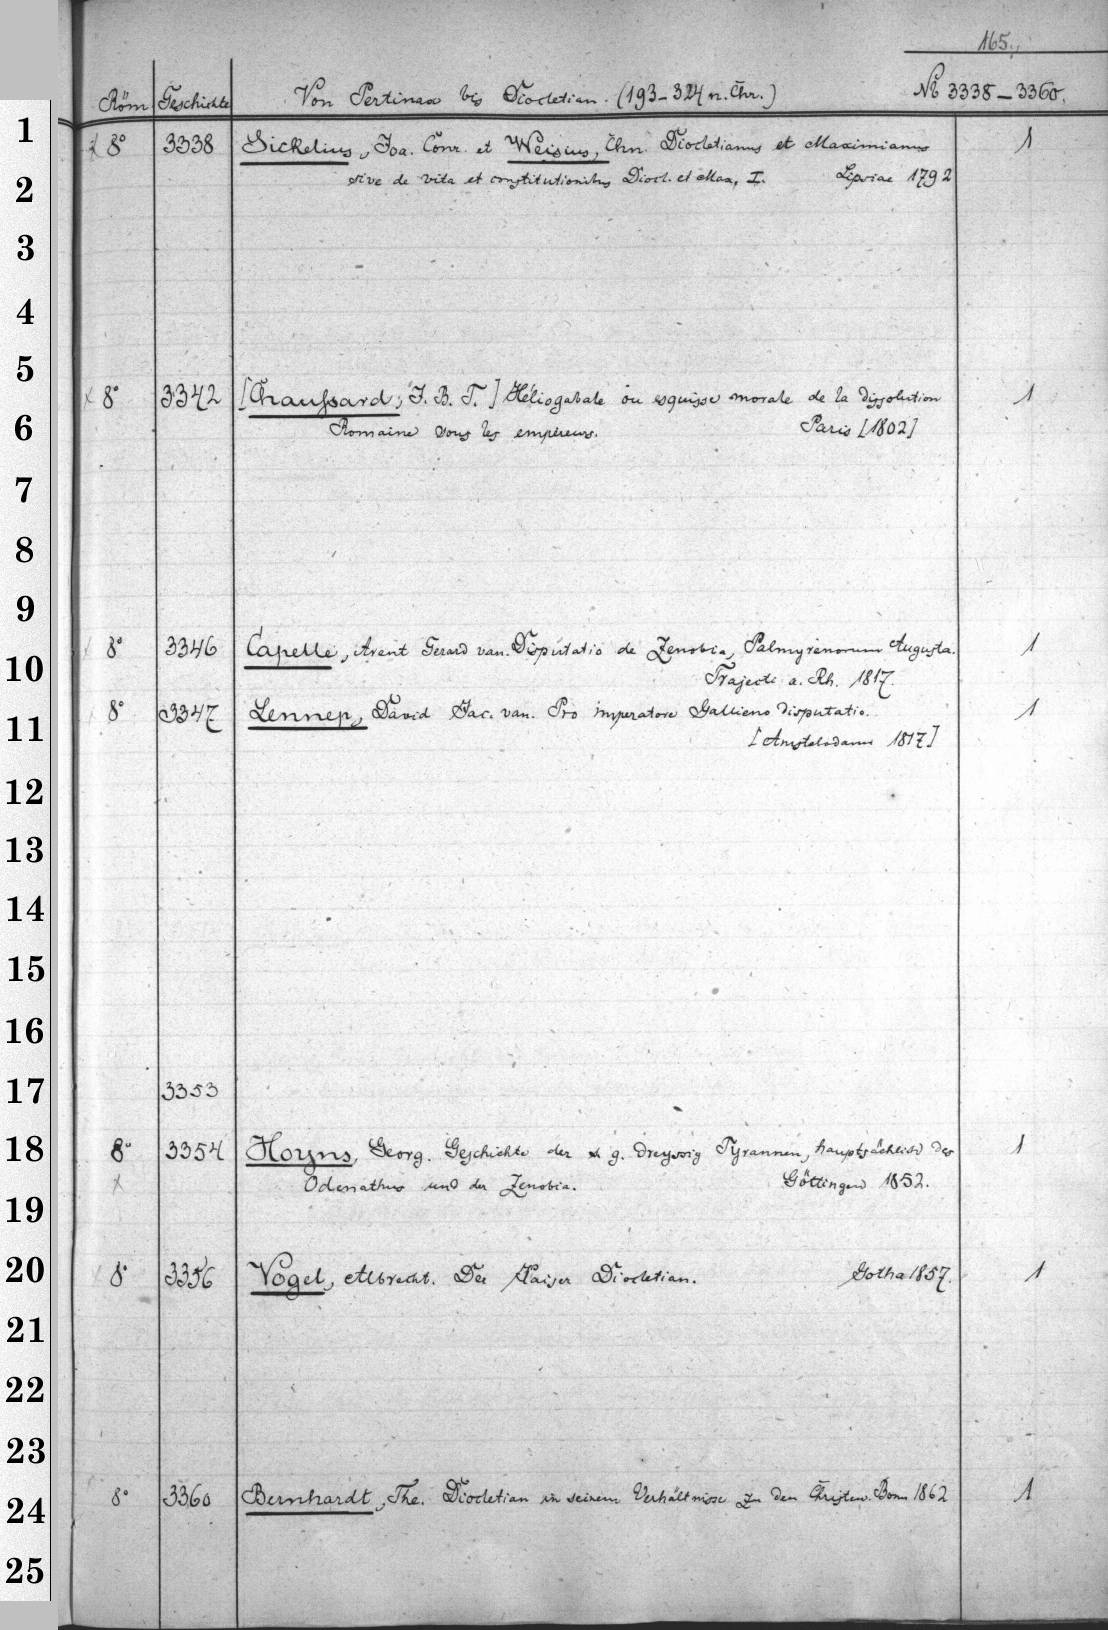 165.
Röm. Geschichte Von Pertinax bis Diocletian. (193-324 n. Chr.) № 3338-3360.
1
x 8° 3338 Sickelius, Joa. Conr. et Weisius, Chn. Diocletianus et Maximianus 1
2
sive de vita et constitutionibus Diocl. et Max, I. Lipsiae 1792
3
4
5
x 8° 3342 [Chaussard, J. B. T.] Héliogabale ou esquisse morale de la dissolution 1
6
Romaine sous les empereurs. Paris [1802]
7
8
9
8° 3346 Capelle, Arent Gerard van. Disputatio de Zenobia, Palmyrenorum Augusta. 1
10
Trajecti a. Rh. 1817.
8° 3347 Lennep, David Jac. van. Pro imperatore Gallieno disputatio. 1
11
[Amstelodami 1817]
12
13
14
15
16
17
3353
18
8° 3354 Hoyns, Georg. Geschichte der s. g. dreyssig Tyrannen, hauptsächlich des 1
x Odenathus und der Zenobia. Göttingen 1852.
19
20
8° 3356 Vogel, Albrecht. Der Kaiser Diocletian. Gotha 1857. 1
21
22
23
8° 3360 Bernhardt, The. Diocletian in seinem Verhältnisse zu den Christen. Bonn 1862 1
24
25